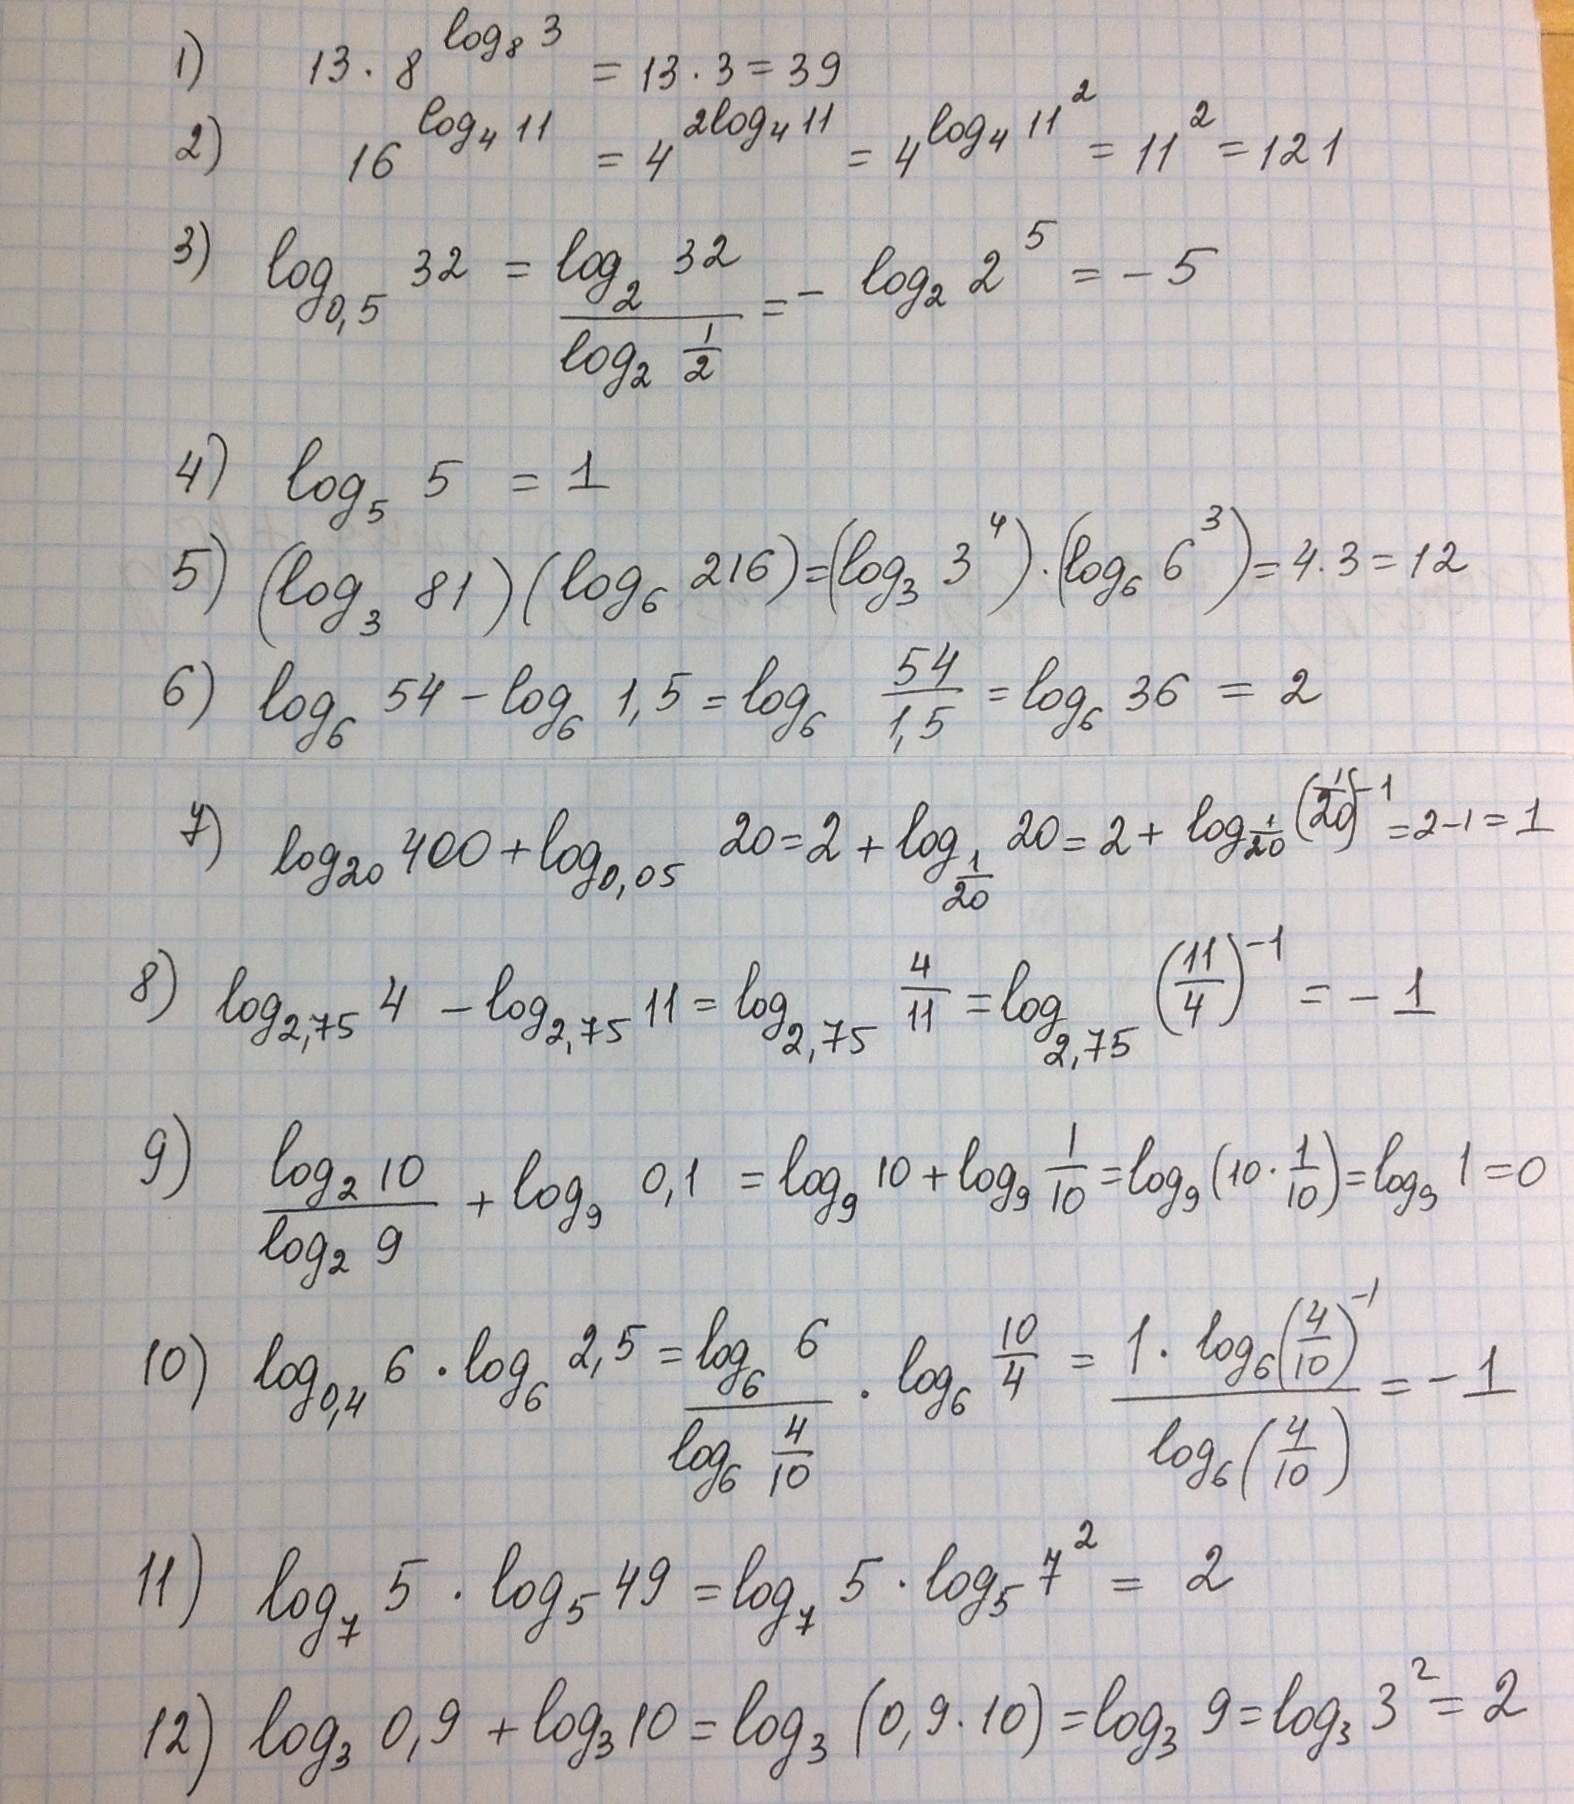 1) 13 · 8^{log_8 3} = 13 · 3 = 39
2) 16^{log_4 11} = 4^{2log_4 11} = 4^{log_4 11^2} = 11^2 = 121
3) log_{0,5} 32 = \frac{log_2 32}{log_2 \frac{1}{2}} = - log_2 2^5 = - 5
4) log_5 5 = 1
5) (log_3 81)(log_6 216) = (log_3 3^4) · (log_6 6^3) = 4 · 3 = 12
6) log_6 54 - log_6 1,5 = log_6 \frac{54}{1,5} = log_6 36 = 2
7) log_{20} 400 + log_{0,05} 20 = 2 + log_{\frac{1}{20}} 20 = 2 + log_{\frac{1}{20}} (\frac{1}{20})^{-1} = 2 - 1 = 1
8) log_{2,75} 4 - log_{2,75} 11 = log_{2,75} \frac{4}{11} = log_{2,75} (\frac{11}{4})^{-1} = - 1
9) \frac{log_2 10}{log_2 9} + log_9 0,1 = log_9 10 + log_9 \frac{1}{10} = log_9 (10 · \frac{1}{10}) = log_9 1 = 0
10) log_{0,4} 6 · log_6 2,5 = \frac{log_6 6}{log_6 \frac{4}{10}} · log_6 \frac{10}{4} = \frac{1 · log_6 (\frac{4}{10})^{-1}}{log_6 (\frac{4}{10})} = - 1
11) log_7 5 · log_5 49 = log_7 5 · log_5 7^2 = 2
12) log_3 0,9 + log_3 10 = log_3 (0,9 · 10) = log_3 9 = log_3 3^2 = 2